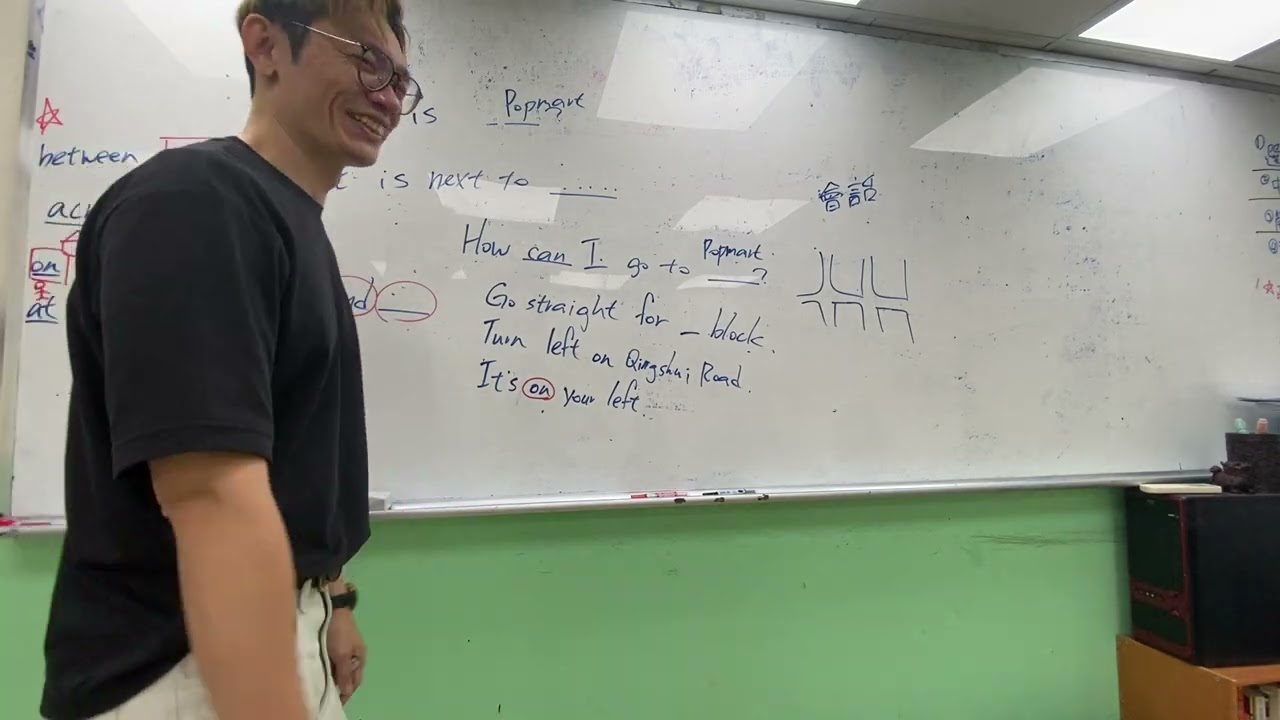 is Popmart
between
is next to ......
會話
How can I go to Popmart ?
on
nd
Go straight for _ block.
at
Turn left on Qingshui Road.
It's on your left.